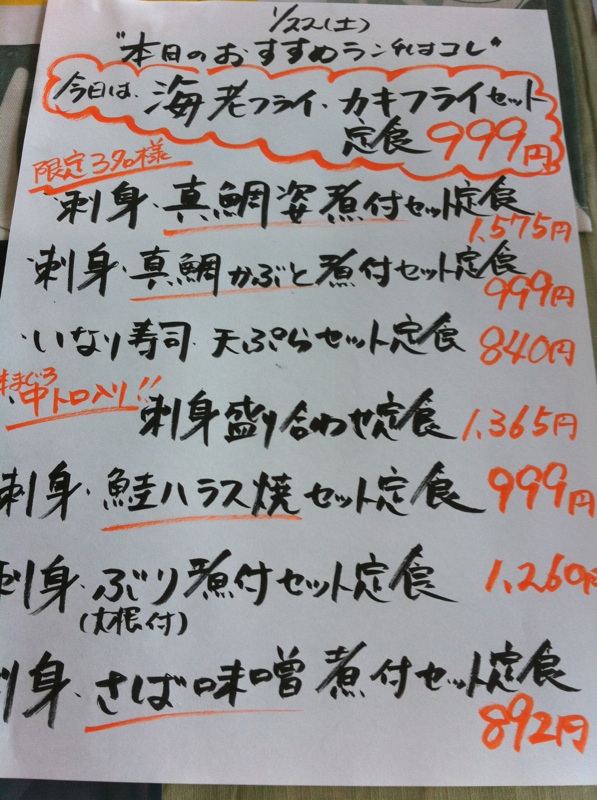 1/22(土)
"本日のおすすめランチはコレ"
今日は、海老フライ・カキフライセット
定食 999円
限定3名様
刺身・真鯛姿煮付セット定食
1,575円
刺身・真鯛かぶと煮付セット定食
999円
いなり寿司 天ぷらセット定食 840円
本まぐろ
中トロ入り!!
刺身盛り合わせ定食 1,365円
刺身・鮭ハラス焼セット定食 999円
刺身・ぶり煮付セット定食 1,260円
(大根付)
刺身・さば味噌煮付セット定食
892円